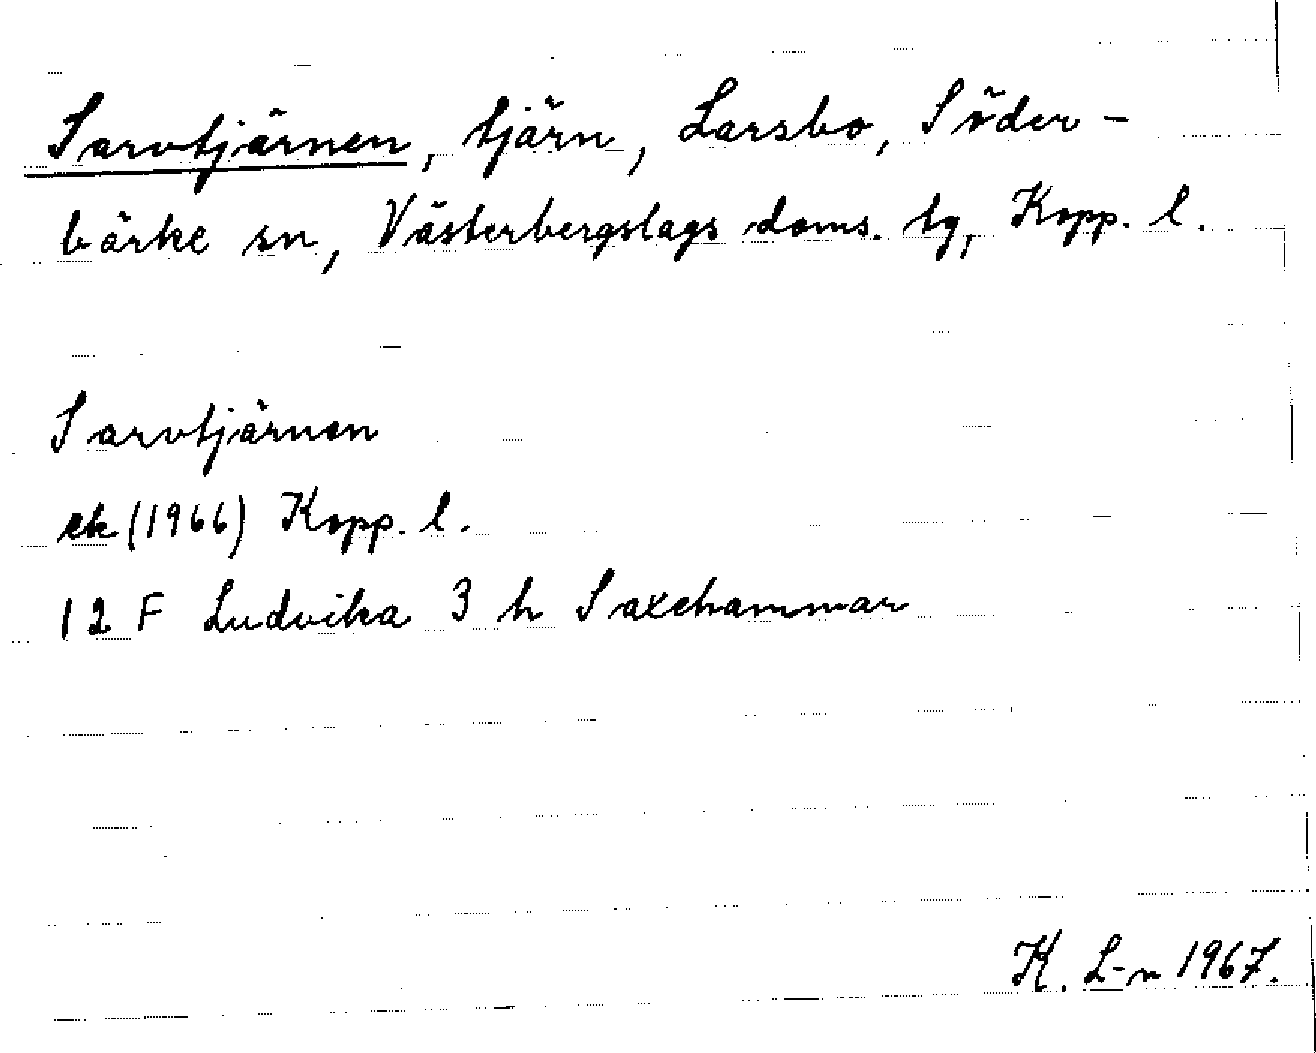 Sarvtjärnen, tjärn, Larsbo, Söder-
bärke sn, Västerbergslags doms. tg, Kopp. l.
Sarvtjärnen
ek (1966) Kopp. l.
12 F Ludvika 3 h Saxehammar
K. L-n 1967.